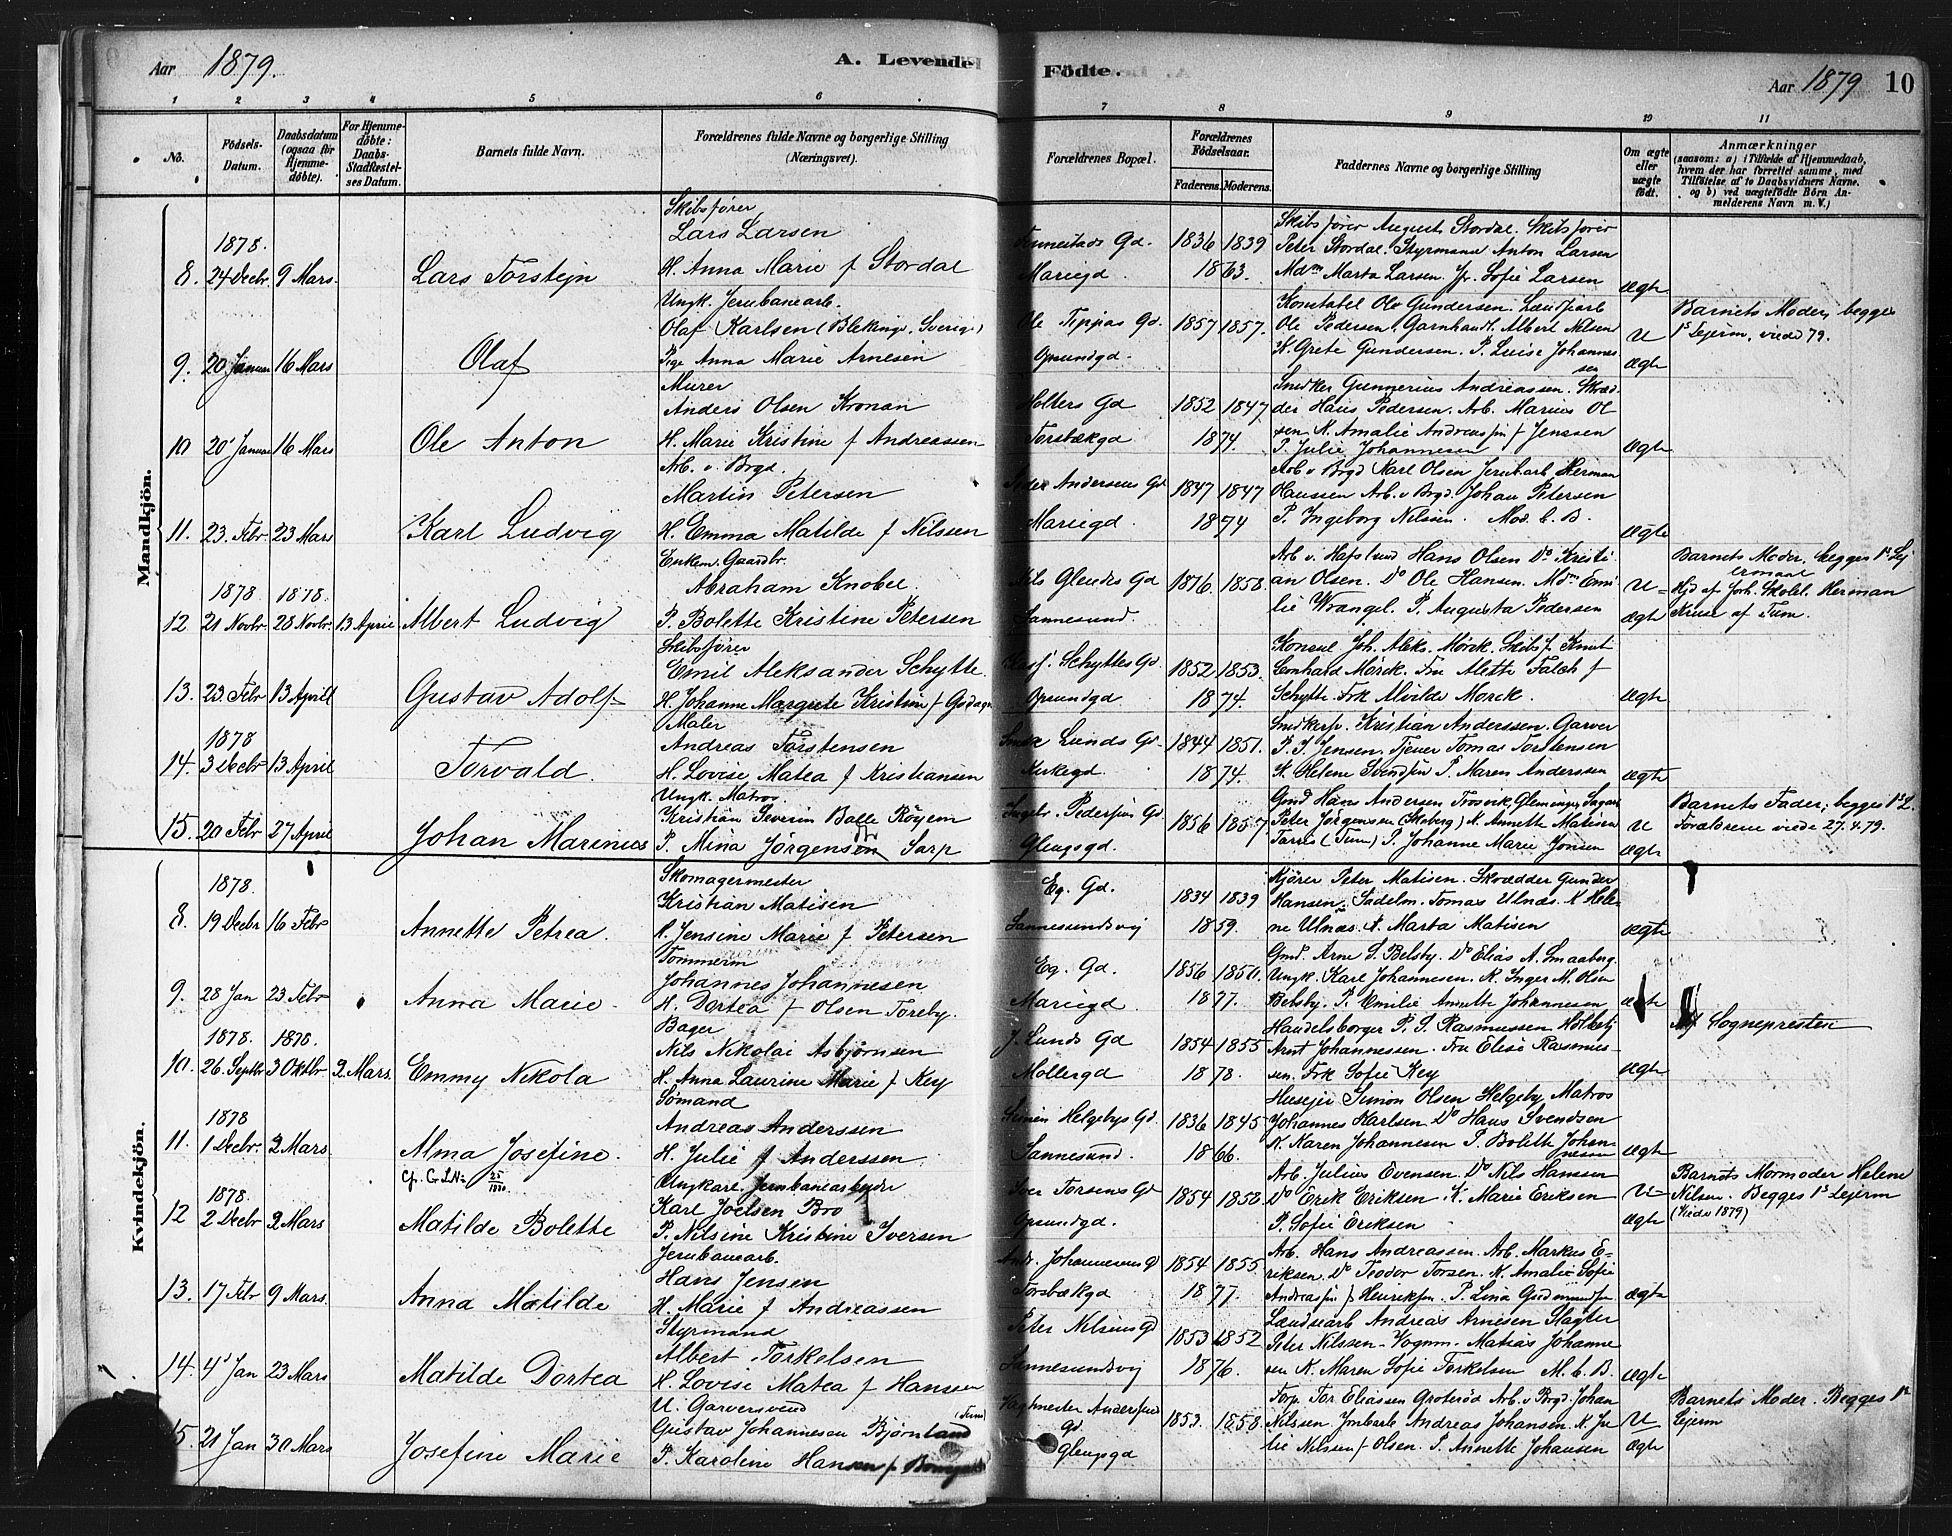 Aar 1879.
A. Levende
Födte.
Aar 1879
10
1 2 3 4 5 6 7 8 9 10 11
No.
Födsels-Datum.
Daabsdatum (ogsaa for Hjemmedöbte).
For Hjemmedøbte: Daabs-Stadfæstelses Datum.
Barnets fulde Navn.
Forældrenes fulde Navne og borgerlige Stilling (Næringsvei).
Forældrenes Bopæl.
Forældrenes Födselsaar.
Faderens. Moderens.
Faddernes Navne og borgerlige Stilling
Om ægte eller uægte født.
Anmærkninger
(saasom: a) i Tilfælde af Hjemmedaab, hvem der har forrettet samme, med Tilföielse af to Daabsvidners Navne, og b) ved uægtefödte Börn Anmelderens Navn m. V.)
Mandkjön.
8. 1878. 24 Decbr. 9 Mars. Lars Torstejn
Skibsfører
Lars Larsen
H. Anna Marie f Stordal
Gd. Mariegd. 1836 1839 1863.
Skibsfører August Stordal. Skibsfører
Peter Stordal. Styrmand Anton Larsen
Mdm Marta Larsen. Jfr. Sofie Larsen
ægte
9. 20 Januar 16 Mars Olaf
Ungk. Jernbanearb.
Olaf Karlsen (Blekinge, Sverige)
Pige Anna Marie Arnesen
Ole Tippas Gd. Opsundgd. 1857 1857.
Konstabel Ole Gundersen.
Ole Pedersen. Garnhandl. Albert Nilsen
K. Grete Gundersen. P. Luise Johannessen
U ægte
Barnets Moder, begges
1s Lejerm, viede 79.
10 20 Januar 16 Mars Ole Anton
Murer
Anders Olsen Kronan
H. Marie Kristine f Andreassen
Holters Gd Torsbækgd 1852 1847 1874.
Snedker Gunnerius Andreassen. Skræd-
der Hans Pedersen. Arb. Marius Ol
sen K. Amalie Andreassen f Jenssen
P. Julie Johannesen
ægte
11. 23. Febr 23 Mars Karl Ludvig
Arb. v. Brgd.
Martin Petersen
H. Emma Matilde f Nilssen
Peder Andersens Gd Mariegd. 1847 1847 1874
Arb v Brgd Karl Olsen Jernbarb Herman
Hanssen Arb. v Brgd. Johan Petersen
P. Ingeborg Nilssen. Mod. s. B.
ægte
12 1878 21 Novbr. 1878. 28 Novbr. 13 April Albert Ludvig
Enkem. Gaardbr.
Abraham Knobel
P. Bolette Kristine Petersen
Nils Glendes Gd Sannesund. 1816. 1858.
Arb v. Hafslund Hans Olsen Do Kristi-
an Olsen. Do Ole Hansen. Mdm Emi
lie Wrangel. P. Augusta Pedersen
U ægte
Barnets Moder, begges 1s Lej
ermaal
Hjd af Joh. Skolel. Herman
af Tune.
13. 23 Febr 13 April Gustav Adolf
Skibsfører
Emil Aleksander Schytte.
H. Johanne Margrete Kristine f
Schyttes Gd. Opsundgd 1852 1853. 1874.
Konsul Joh. Aleks. Mørck. Skibsf. Knut
Lernhard Mörck. Fru Alette Falch f
Schytte. Frk Alvilde Mørck.
ægte
14. 1878 3 Decbr 13 April Torvald.
Maler
Andreas Torstensen
H. Lovise Matea f Kristiansen
Lunds Gd. Kirkegd. 1844 1851. 1874.
Snedkersv. Kristian Anderssen. Garver
P. J. Jensen. Tjener Tomas Torstensen
K. Helene Svendsen P. Maren Anderssen
ægte
15. 20 Febr 27 April Johan Marinius
Ungk. Matros
Kristian Severin Balle Röyem
P. Mina Jörgensen Sarp
Pedersens Gd. Glengsgd. 1856 1857
Gmd Hans Andersen Trosvik, Glemmingen,
Peter Jørgensen (Skoberg) K. Annette Matisen
(Tune) P. Johanne Marie Jonsen
U ægte
Barnets Fader; begges 1s L.
Forældrene viede 27.4.79.
Kvindekjön.
8. 1878. 19 Decbr 16 Febr Annette Petrea.
Skomagermester
Kristian Matisen
H. Jensine Marie f Petersen
Eg. Gd. Sannesundsvej 1834 1839 1859.
Kjörer Peter Matisen. Skrædder Gunder
Hansen. Sadelm. Tomas Ulnæs. K Hele-
ne Ulnæs. K Marta Matisen
ægte
9. 28 Jan 23 Febr Anna Marie
Tömmerm
Johannes Johannesen
H. Dortea f Olsen Toreby.
Eg. Gd. Mariegd 1856 1850. 1877.
Gmd. Arne S. Belsby. Do Elias A. Smaaberg.
Ungk. Karl Johannesen. K. Inger M. Olsen
Belsby. P. Emilie Annette Johannesen
ægte
10. 1878. 26 Septbr 1878. 3 Oktbr. 2 Mars. Emmy Nikola
Bager
Nils Nikolai Asbjørnsen
H. Anna Laurine Marie f Key
J. Lunds Gd Møllergd 1854 1855 1878.
Handelsborger P. J. Rasmussen
Arnt Johannessen. Fru Elise Rasmus-
sen. Frk Sofie Key
ægte
Af Sognepresten
11. 1878 1 Decbr. 2 Mars. Alma Josefine.
Sömand
Andreas Anderssen
H. Julie f Anderssen
Simen Helgebys Gd Sannesund. 1836 1845 1866.
Husejer Simon Olsen Helgeby Matros
Johannes Karlsen Do Hans Svendsen
K. Karen Johannesen P. Bolette Johannesen
ægte
12 1878. 2 Decbr 2 Mars Matilde Bolette
Ungkarl Jernbanearbejder
Karl Joelsen Bro
P. Nilsine Kristine Iversen
Iver Torsens Gd Opsundgd. 1854 1858
Arb. Julius Evensen. Do Nils Hanssen
Do Erik Eriksen. K. Marie Eriksen
P. Sofie Eriksen
U ægte
Barnets Mormoder Helene
Nilsen. Begges 1s Lejerm
(Viede 1879)
13. 17 Febr 9 Mars. Anna Matilde
Jernbanearb.
Hans Jensen
H. Marie f Andreassen
Andr. Johannesens Gd Torsbækgd 1854 1855 1877.
Arb. Hans Andreassen. Arb. Markus E-
riksen. Do Teodor Torsen. K. Amalie Sofie
Andreassen f Henriksen. P. Lina Gudmundsen
ægte
14. 4 Jan 23 Mars Matilde Dortea
Styrmand
Albert Torkelsen
H. Lovise Matea f Hanssen
Peter Nilsens Gd Sannesundsvej 1853 1852 1876.
Andreas Arnesen Slagter
Peter Nilssen. Vognm. Matias Johanne
sen K. Maren Sofie Torkelsen M. s. B.
ægte
15. 21 Jan 30 Mars Josefine Marie
U. Garversvend
Gustav Johannesen Bjørnland (Tune)
P. Karoline Hansen
Vægtmester Andersens Gd. Glengsgd 1853. 1858
Torp. Tor Eliassen Grotröd Arb. v Brgd. Johan
Nilsen. Jrnbarb Andreas Johansen. K. Ju
lie Nilssen f Olsen. P. Annette Johansen
U ægte
Barnets Moder. Begges 1s
Lejerm